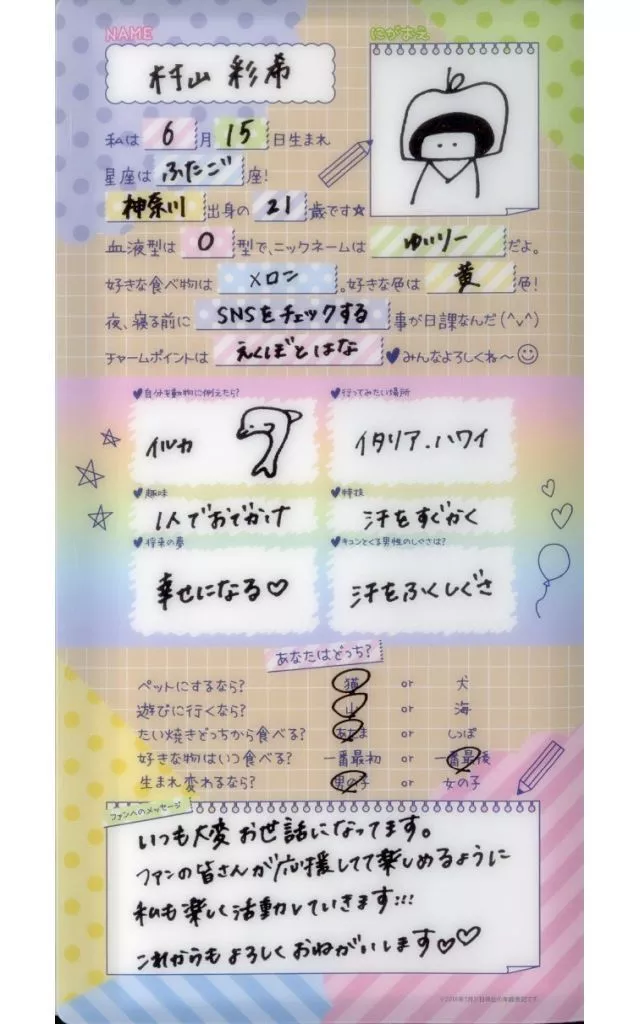 NAME
にがおえ
村山 彩希
私は 6 月 15 日生まれ
星座は ふたご 座!
神奈川 出身の 21 歳です☆
血液型は O 型で、ニックネームは ゆいりー だよ。
好きな食べ物は メロン 。好きな色は 黄 色!
夜、寝る前に SNSをチェックする 事が日課なんだ(^v^)
チャームポイントは えくぼとはな ♥みんなよろしくね〜☺
♥自分を動物に例えたら?
♥行ってみたい場所
イルカ
イタリア.ハワイ
♥趣味
♥特技
1人でおでかけ
汗をすぐかく
♥将来の夢
♥キュンとくる男性のしぐさは?
幸せになる♡
汗をふくしぐさ
あなたはどっち?
ペットにするなら? 猫 or 犬
遊びに行くなら? 山 or 海
たい焼きどっちから食べる? あたま or しっぽ
好きな物はいつ食べる? 一番最初 or 一番最後
生まれ変わるなら? 男の子 or 女の子
ファンへのメッセージ
いつも大変お世話になってます。
ファンの皆さんが応援してて楽しめるように
私も楽しく活動していきます:::
これからもよろしくおねがいします♡♡